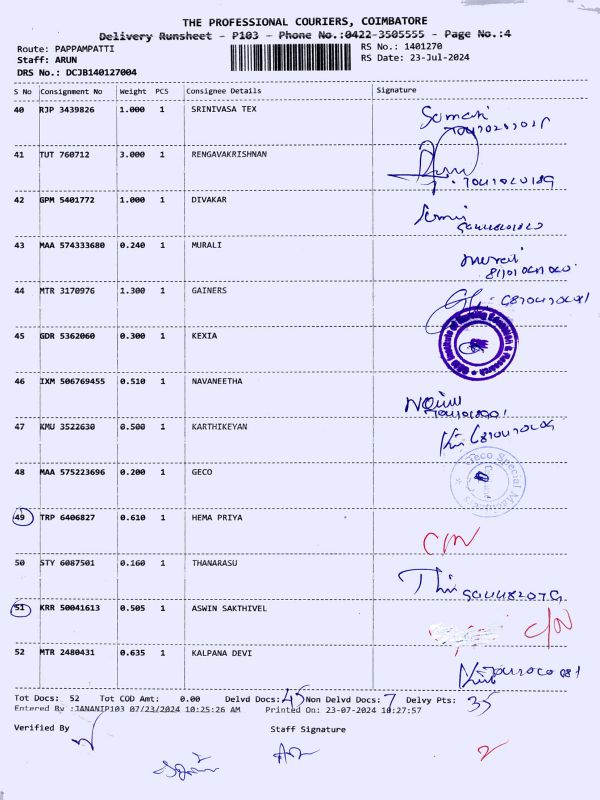 THE PROFESSIONAL COURIERS, COIMBATORE
Delivery Runsheet - P103 - Phone No.:0422-3505555 - Page No.:4
Route: PAPPAMPATTI RS No.: 1401270
Staff: ARUN RS Date: 23-Jul-2024
DRS No.: DCJB140127004
S No Consignment No Weight PCS Consignee Details Signature
40 RJP 3439826 1.000 1 SRINIVASA TEX
41 TUT 760712 3.000 1 RENGAVAKRISHNAN
42 GPM 5401772 1.000 1 DIVAKAR
43 MAA 574333680 0.240 1 MURALI
44 MTR 3170976 1.300 1 GAINERS
45 GDR 5362060 0.300 1 KEXIA
46 IXM 506769455 0.510 1 NAVANEETHA
47 KMU 3522630 0.500 1 KARTHIKEYAN
48 MAA 575223696 0.200 1 GECO
49 TRP 6406827 0.610 1 HEMA PRIYA C/N
50 STY 6087501 0.160 1 THANARASU
51 KRR 50041613 0.505 1 ASWIN SAKTHIVEL C/N
52 MTR 2480431 0.635 1 KALPANA DEVI
Tot Docs: 52 Tot COD Amt: 0.00 Delvd Docs: 45 Non Delvd Docs: 7 Delvy Pts: 35
Entered By :JANANIP103 07/23/2024 10:25:26 AM Printed On: 23-07-2024 10:27:57
Verified By Staff Signature
2